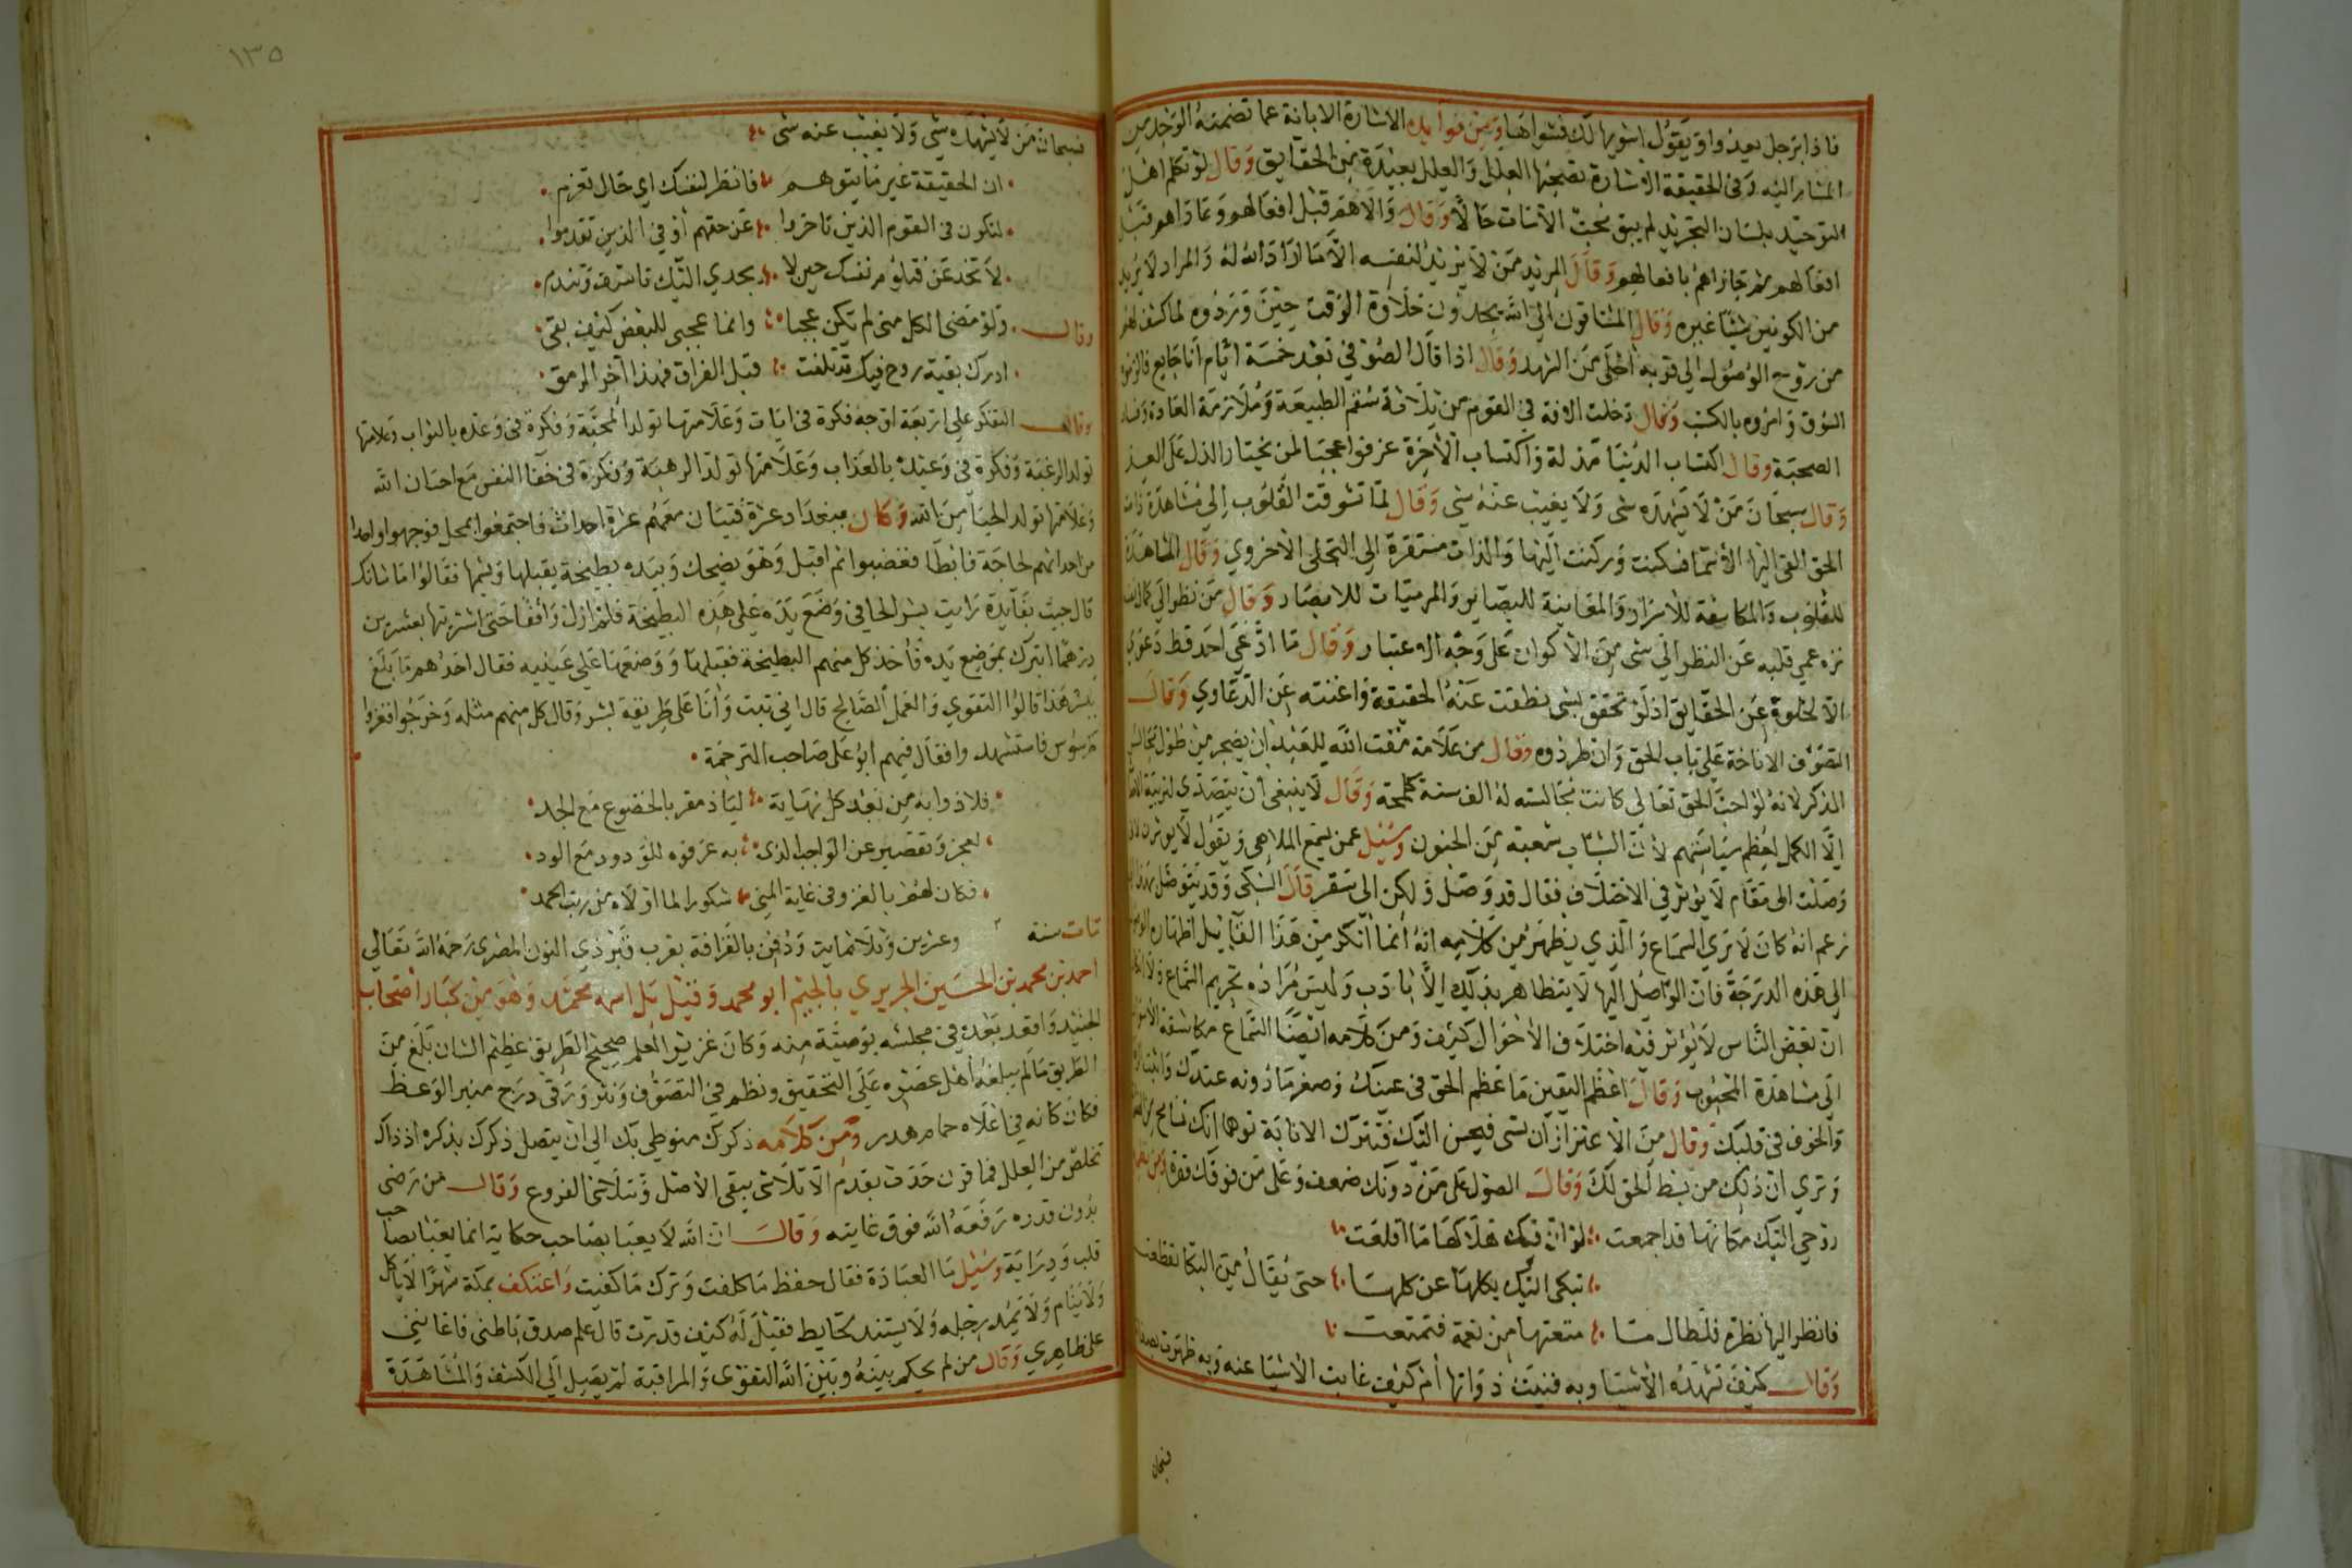 فاذا برجل يعدوا ويقول اشويها لك فشواها ومن فوايده الاشارة الابانة عما تضمنه الوجد من
المشار اليه وفي الحقيقة الاشارة تصحبها العلل والعلل بعيدة من الحقايق وقال لو تكلم اهل
التوحيد بلسان التجريد لم يبق محب الا مات حالا وقال والاهم قبل افعالهم وعاداهم قبل
افعالهم ثم جازاهم بافعالهم وقال المريد من لا يريد لنفسه الا ما اراد الله له والمراد لا يريد
من الكونين شيئا غيره وقال المشتاقون الى الله يجدون حلاوة الوقت حين وروده لما كشف لهم
من روح الوصول الى قربه احلى من الشهد وقال اذا قال الصوفي بعد خمسة ايام انا جايع فالزموه
السوق وامروه بالكسب وقال دخلت الافة في القوم من ثلاثة سقم الطبيعة وملازمة العادة وفساد
الصحبة وقال اكتساب الدنيا مذلة واكتساب الاخرة عز فواعجبا لمن يختار الذل على العز
وقال سبحان من لا يشهده شي ولا يغيب عنه شي وقال لما تشوقت القلوب الى مشاهدة ذات
الحق القى اليها الاسما فسكنت وركنت اليها والذات مستترة الى التجلي الاخروي وقال المشاهدة
للقلوب والمكاشفة للاسرار والمعاينة للبصاير والمرئيات للابصار وقال من نظر الى كمال
نزه عمي قلبه عن النظر الى شي من الاكوان على وجه الاعتبار وقال ما ادعى احد قط دعوى
الا لخلوه عن الحقايق اذ لو تحقق بشي نطقت عنه الحقيقة واغنته عن الدعاوي وقال
التصوف الاناخة على باب الحق وان طردوه وقال من علامة مقت الله للعبد ان يضجر من طول مجالس
الذكر لانه لو احب الحق تعالى كانت مجالسته له الف سنة كلمحة وقال لا ينبغي ان يتصدى لتربية
الا الكمل لعظم سياستهم لان الشباب شعبة من الجنون وسئل عمن يسمع الملاهي ويقول لا يوثر
وصلت الى مقام لا يوثر في الاختلاف فقال قد وصل ولكن الى سقر قال السبكي وقد يتوصل بهذا
زعم انه كان لا يرى السماع والذي يظهر من كلامه انه انما انكر من هذا القايل اظهاره
الى هذه الدرجة فان الواصل اليها لا يتظاهر بذلك الا بادب وليس مراده تحريم السماع ولا
ان بعض الناس لا يوثر فيه اختلاف الاحوال كيف ومن كلامه ايضا السماع مكاشفة الاسرار
الى مشاهدة المحبوب وقال اعظم اليقين ما عظم الحق في عينك وصغر ما دونه عندك واثبت
والخوف في قلبك وقال من الاعتزاز ان تسي فيحسن اليك فتترك الانابة توهما انك تسامح
وترى ان ذلك من بسط الحق لك وقال الصول على من دونك ضعف وعلى من فوقك قحة
روحي اليك مكانها قد اجمعت لو ان فيك هلاكها ما اقلعت
تبكي اليك بكلها عن كلها حتى يقال من البكا تقطعت
فانظر اليها نظرة فلطال ما متعتها من نعمة فتمتعت
وقال كيف تشهده الاشيا وبه فنيت ذواتها ام كيف غابت الاشيا عنه وبه ظهرت
فسبحان
١٣٥
فسبحان من لا يشهده شي ولا يغيب عنه شي
ان الحقيقة غير ما يتوهم فانظر لنفسك اي حال تعزم
لتكون في القوم الذين تاخروا عن حقهم او في الذين تقدموا
لا تخدعن فتلوم نفسك حين لا يجدي اليك تاسف وتندم
وقال ولو مضى الكل مني لم يكن عجبا وانما عجبي للبعض كيف بقي
ادرك بقية روح فيك قد تلفت قبل الفراق فهذا آخر الرمق
وقال التفكر على اربعة اوجه فكرة في ايات وعلامتها تولد المحبة وفكرة في وعده بالثواب وعلامتها
تولد الرغبة وفكرة في وعيده بالعذاب وعلامتها تولد الرهبة وفكرة في خفا النفس مع احسان الله
وعلامتها تولد الحيا من الله وكان ببغداد عشرة فتيان معهم عشرة احداث فاجتمعوا بمحل فوجهوا واحدا
من احداثهم لحاجة فابطا فغضبوا ثم اقبل وهو يضحك وبيده بطيخة يقبلها ويشمها فقالوا ما شانك
قال جيت بفايدة رايت بشر الحافي وضع يده على هذه البطيخة فلم ازل واقفا حتى اشتريتها بعشرين
درهما اتبرك بموضع يده فاخذ كل منهم البطيخة فقبلها ووضعها على عينيه فقال احدهم ما بلغ
بشر هذا قالوا التقوى والعمل الصالح قال اني تبت وانا على طريقة بشر وقال كل منهم مثله وخرجوا فغزوا
طرسوس فاستشهدوا فقال فيهم ابو على صاحب الترجمة
فلاذوا به من بعد كل نهاية لياذ مقر بالخضوع مع الجد
لعجز وتقصير عن الواجب الذى به عرفوه للودود مع الود
فكان لهم بالغزو في غاية المنى شكورا لما اولاه من ربت الحمد
مات سنة ٢ وعشرين وثلاثماية ودفن بالقرافة بقرب قبر ذي النون المصرى رحمه الله تعالى
احمد بن محمد بن الحسين الجريري بالجيم ابو محمد وقيل بل اسمه محمد وهو من كبار اصحاب
الجنيد واقعد بعده في مجلسه بوصية منه وكان غزير العلم صحيح الطريق عظيم الشان بلغ من
الطريق ما لم يبلغه اهل عصره على التحقيق ونظم في التصوف ونثر ورقى درج منبر الوعظ
فكان كانه في اعلاه حمام هدر ومن كلامه ذكرك منوطي بك الى ان يتصل ذكرك بذكره اذ ذاك
تخلص من العلل فما قرن حدث بقدم الا تلاشى يبقى الاصل وتتلاشى الفروع وقال من رضى
بدون قدره رفعه الله فوق غايته وقال ان الله لا يعبا بصاحب حكاية انما يعبا بصاحب
قلب ودراية وسئل ما العبادة فقال حفظ ما كلفت وترك ما كفيت واعتكف بمكة شهرا لا ياكل
ولا ينام ولا يمد رجله ولا يستند لحايط فقيل له كيف قدرت قال علم صدق باطنى فاعانني
على ظاهري وقال من لم يحكم بينه وبين الله التقوى والمراقبة لم يصل الى الكشف والمشاهدة